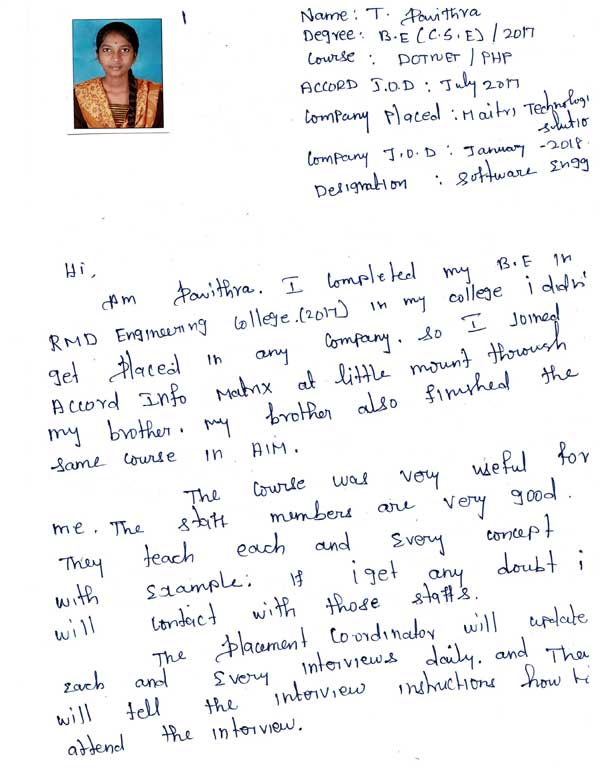 Name: T. Pavithra
Degree: B.E (C.S.E) / 2017
Course : DOTNET / PHP
ACCORD J.O.D : July 2017
Company Placed : Maitri Technologi
Solutio
Company J.O.D : January -2018.
Designation : Software Engg
Hi,
Am Pavithra. I Completed my B.E in
RMD Engineering College.(2017) in my college i didn'
get Placed in any Company. So I Joined
Accord Info Matrix at little mount throwsh
my brother. my brother also finished the
same course in AIM.
The Course was very useful for
me. The staff members are very good.
They teach each and Every concept
with Example. If i get any doubt i
will Contact with those staffs.
The Placement Co-ordinator will update
Each and Every interviews daily. and The
will tell the interview instructions how t
attend the interview.